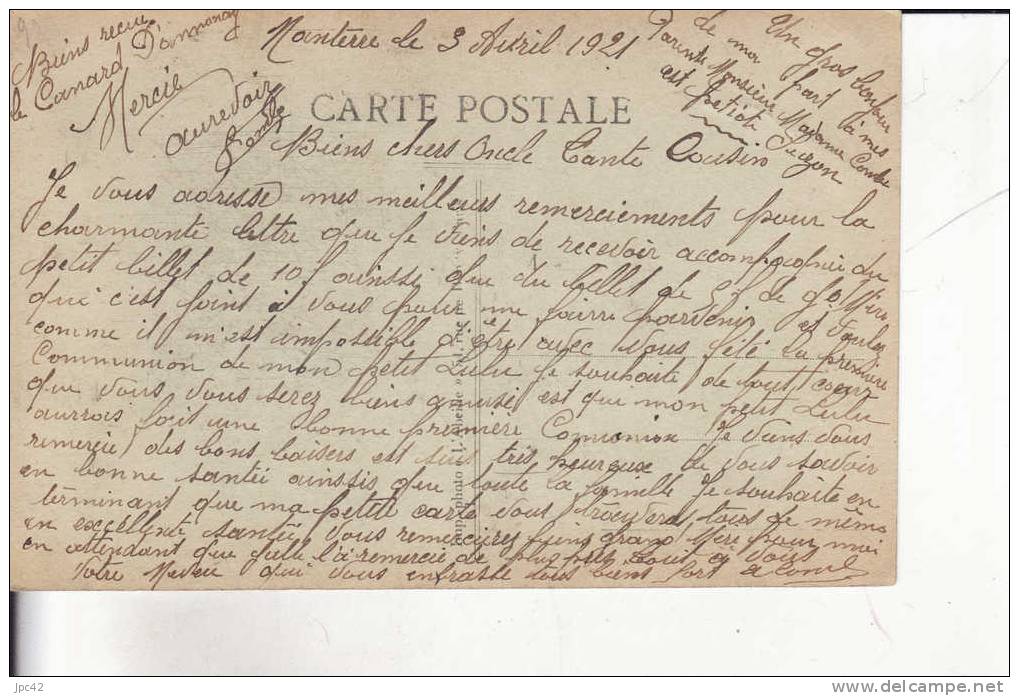 Nanterre le 3 Avril 1921
Biens recu
le Canard D'annonay
Mercie
aurevoir
Un gros bonjour
de ma part à mes
Parents Monsieur Madame Combe
est petiote Suzon
CARTE POSTALE
Biens chers Oncle Tante Cousin
Je vous adresse mes meilleurs remerciements pour la
charmante lettre que je viens de recevoir accompagnie du
petit billet de 10f ainssi que du billet de 5f de gd Mère
qui c'est joint à vous pour me faire parvenir et vouloir
comme il m'est impossible d'être avec vous fété la première
Communion de mon petit Lulu je souhaite de tout coeur
que vous vous serez biens amusé est que mon petit Lulu
aurrois fait une bonne première Comunion Je viens vous
remercie des bons baisers est suis très heureux de vous savoir
en bonne santée ainssis que toute la famille Je souhaite en
terminant que ma petite carte vous trouvera tous de même
en excellente santée vous remercires biens grand Mère pour moi
en attendant que jaille la remercie de plus près tout à vous
Votre Neveu qui vous enbrasse tous biens fort
jpc42
www.delcampe.net